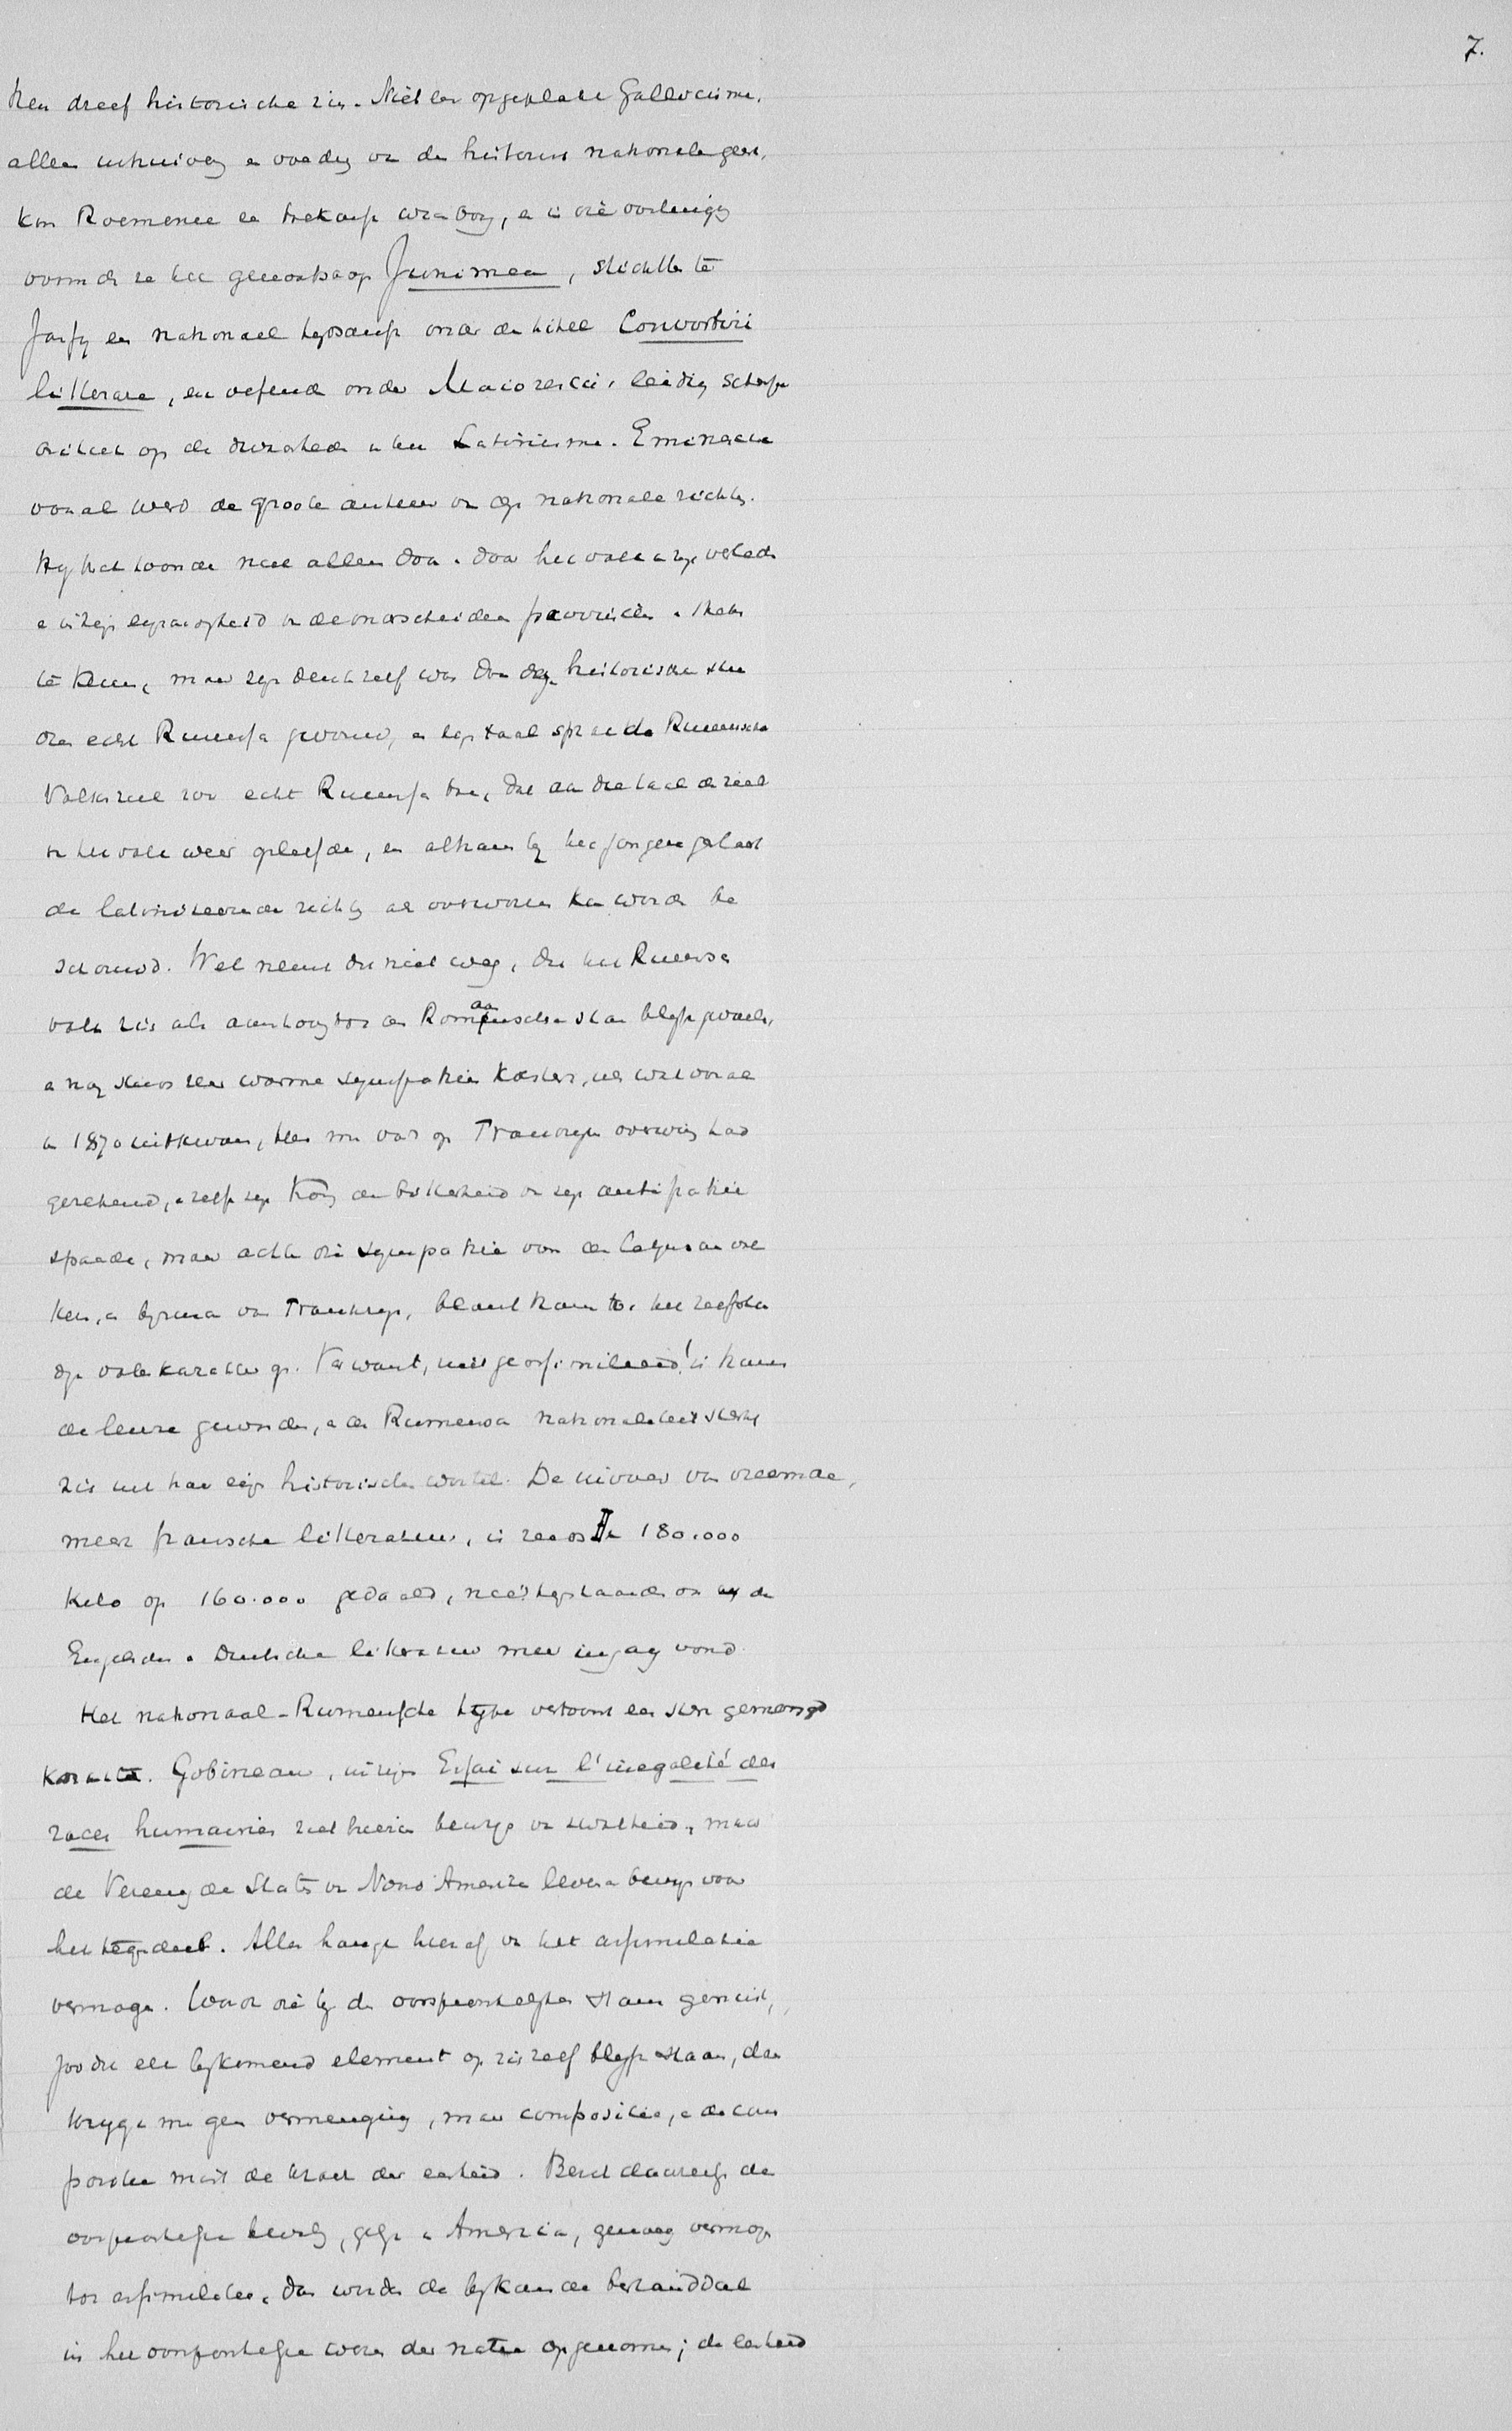 7.
ken dreef historische zin. Niet een opgeplakt Gallicisme,
alleen uit de historisch nationale geest
kon Roemenië een toekomst, en in die overtuiging
vormde ze het genootschap Junimea, stichtte te
Jassy een nationaal tijdschrift onder den titel Convorbiri
litterare, en oefende onder Maiorescu's leiding scherpe
critiek op de dwaasheden van het Latinisme. Eminescu
vooral werd de groote auteur van deze nationale richting.
Hij het toonde niet alleen door het volk in zijn verleden
en in zijn in de onderscheiden provinciën
te kennen, maar zijn denken zelf was door deze historische
echt Rumeensch geworden, en zijn taal sprak de Rumeensche
Volksziel zoo echt Rumeensch toe, dat aan die taal de ziel
van het volk weer opleefde, en althans bij het jongere geslacht
de latiniseerende richting als overwonnen kan worden be
schouwd. Wel neemt dit niet weg, dat het Rumeensche
volk zich als aanhoorig tot den Romaanschen stam blijft voelen,
en nog steeds zeer warme sympathieën koestert, iets wat vooral
in 1870 uitkwam, toen men vast op Frankrijks overwinning had
gerekend, en zelfs zijn Koning de bitterheid van zijn antipathie
spaarde, maar achter die sympathie voor de Latijnsche vol
ken, en bijzonder voor Frankrijk, blonk thans toch het
volkskarakter op. Verwant, niet geassimileerd! is thans
de leuze geworden, en de Rumeensche nationaliteit sterkt
zich uit haar eigen historischen wortel. De invoer van vreemde,
meest fransche litteratuur, is reeds van 180.000
Kilo op 160.000 gedaald, niettegenstaande ook de
Engelsche en Duitsche literatuur meer ingang vond
Het nationaal-Rumeensche type vertoont een zeer gemengd
karakter. Gobineau, in zijn Essai sur l'inégalité des
races humaines ziet hierin bewijs van zwakheid, maar
de Vereenigde Staten van Noord Amerika leveren bewijs voor
het tegendeel. Alles hangt hier af van het assimilatie
vermogen. Waar die bij den oorspronkelijken stam
zoodat elk bijkomend element op zichzelf blijft staan, dan
krijgt men geen vermenging, maar compositie, en de com
positie mist de kracht der eenheid. Bezit daarentegen de
oorspronkelijke, gelijk in Amerika, genoeg vermogen
tot assimilatie, dan worden de bijkomende bestanddeelen
in het oorspronkelijke wezen der natie opgenomen; de eenheid